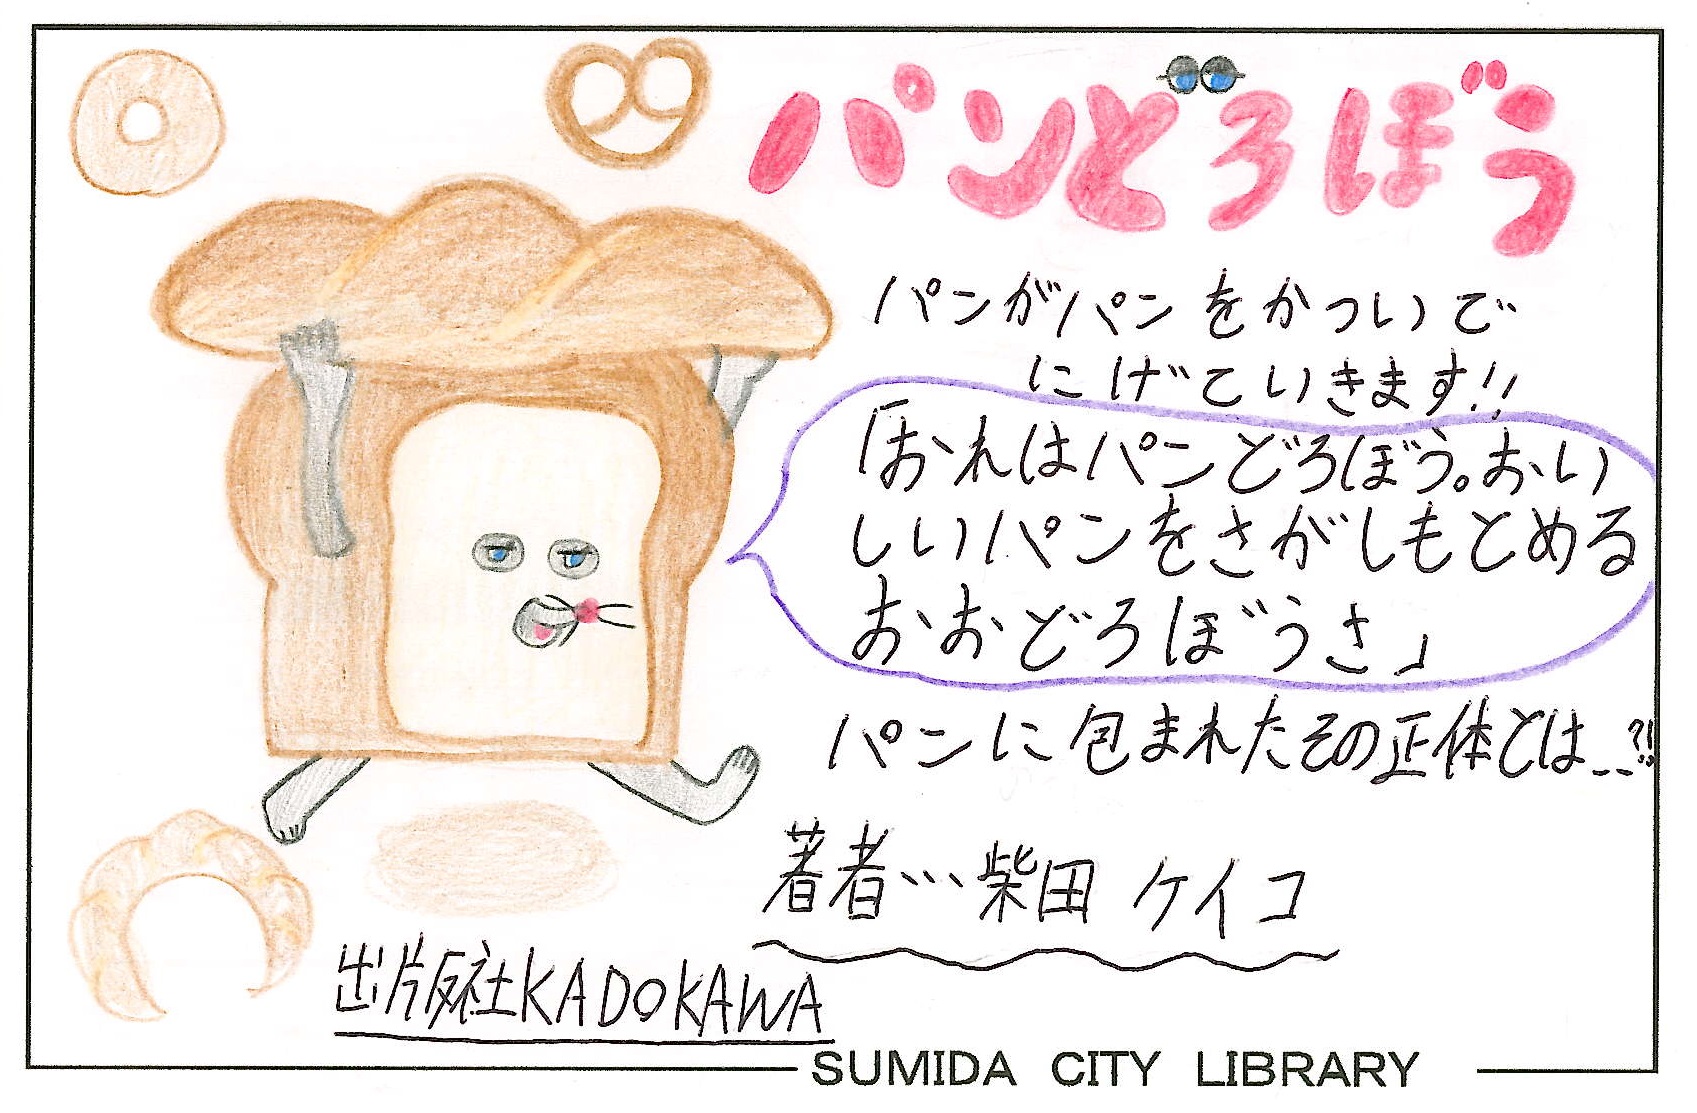 パンどろぼう
パンがパンをかついで
にげていきます!!
「おれはパンどろぼう。おい
しいパンをさがしもとめる
おおどろぼうさ」
パンに包まれたその正体とは...?!
著者…柴田 ケイコ
出版社KADOKAWA
SUMIDA CITY LIBRARY